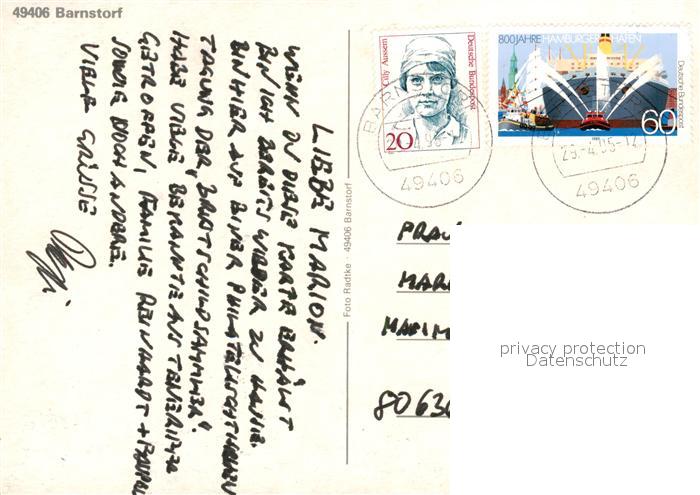 49406 Barnstorf
LIEBE MARION.
WENN DU DIESE KARTE ERHÄLST
BIN ICH BEREITS WIEDER ZU HAUSE.
BIN HIER AUF EINER PHILATELISTISCHEN
TAGUNG DER "BRUSTSCHILDSAMMLER".
HABE VIELE BEKANNTE AUS TENERIFFA
GETROFFEN, FAMILIE REINHARDT +
SOWIE NOCH ANDERE.
VIELE GRÜSSE
Foto Radtke · 49406 Barnstorf
Cilly Aussem
Deutsche Bundespost
20
800 JAHRE HAMBURGER HAFEN
Deutsche Bundespost
60
49406
49406
FRAU
MAR
80636
privacy protection
Datenschutz